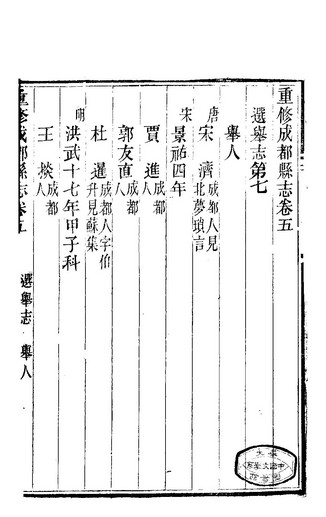 重修成都縣志卷五
選舉志第七
舉人
唐
宋濟成都人見北夢瑣言
宋
景祐四年
賈進成都人
郭友直成都人
杜暹成都人字伯升見蘇集
明
洪武十七年甲子科
王燚成都人
重修成都縣志卷五
選舉志
舉人